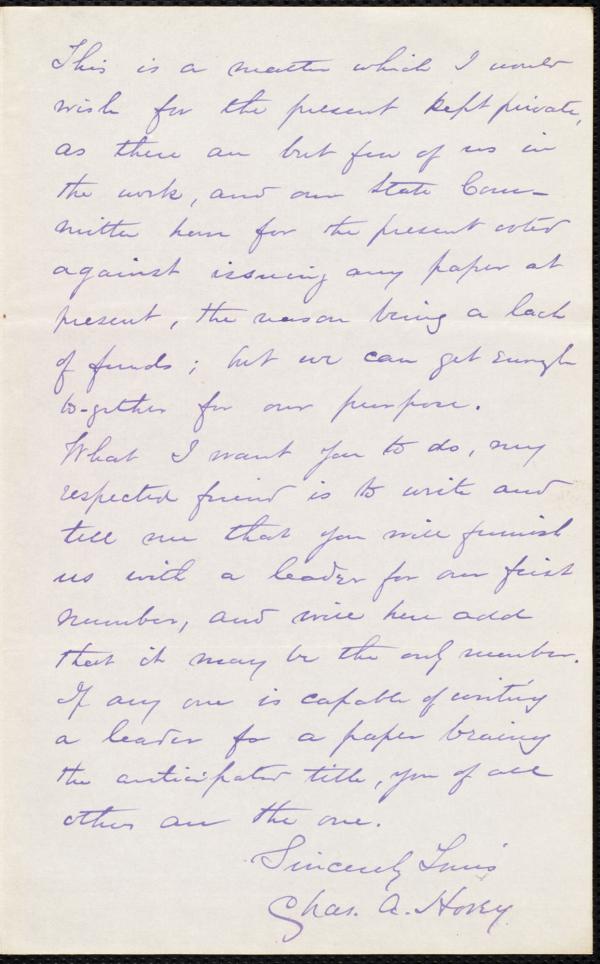 This is a matter which I would
wish for the present kept private,
as there are but few of us in
the work, and our State Com-
mittee have for the present voted
against issuing any paper at
present, the reason being a lack
of funds; but we can get enough
to-gether for our purpose.
What I want you to do, my
respected friend is to write and
tell me that you will furnish
us with a leader for our first
number, and will here add
that it may be the only number.
If any one is capable of writing
a leader for a paper bearing
the anticipated title, you of all
others are the one.
Sincerely Yours
Chas. A. Hovey